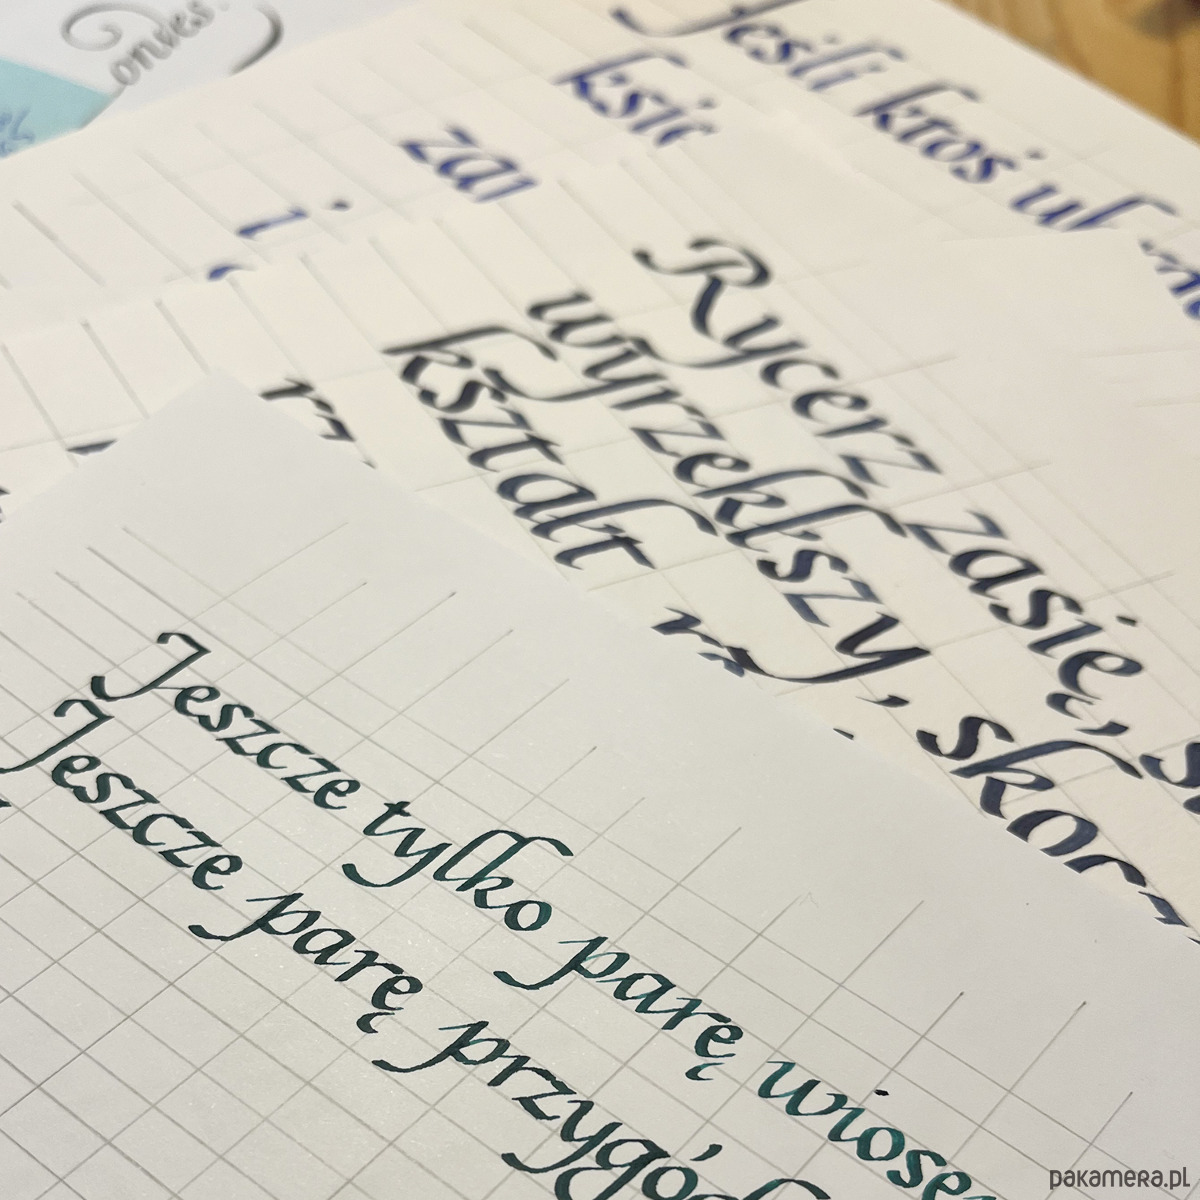 ondes.
Jeśli ktoś
Rycerz zasię,
wyrzekłszy, skor
kształt
Jeszcze tylko parę wiosen
Jeszcze parę przygód
pakamera.pl